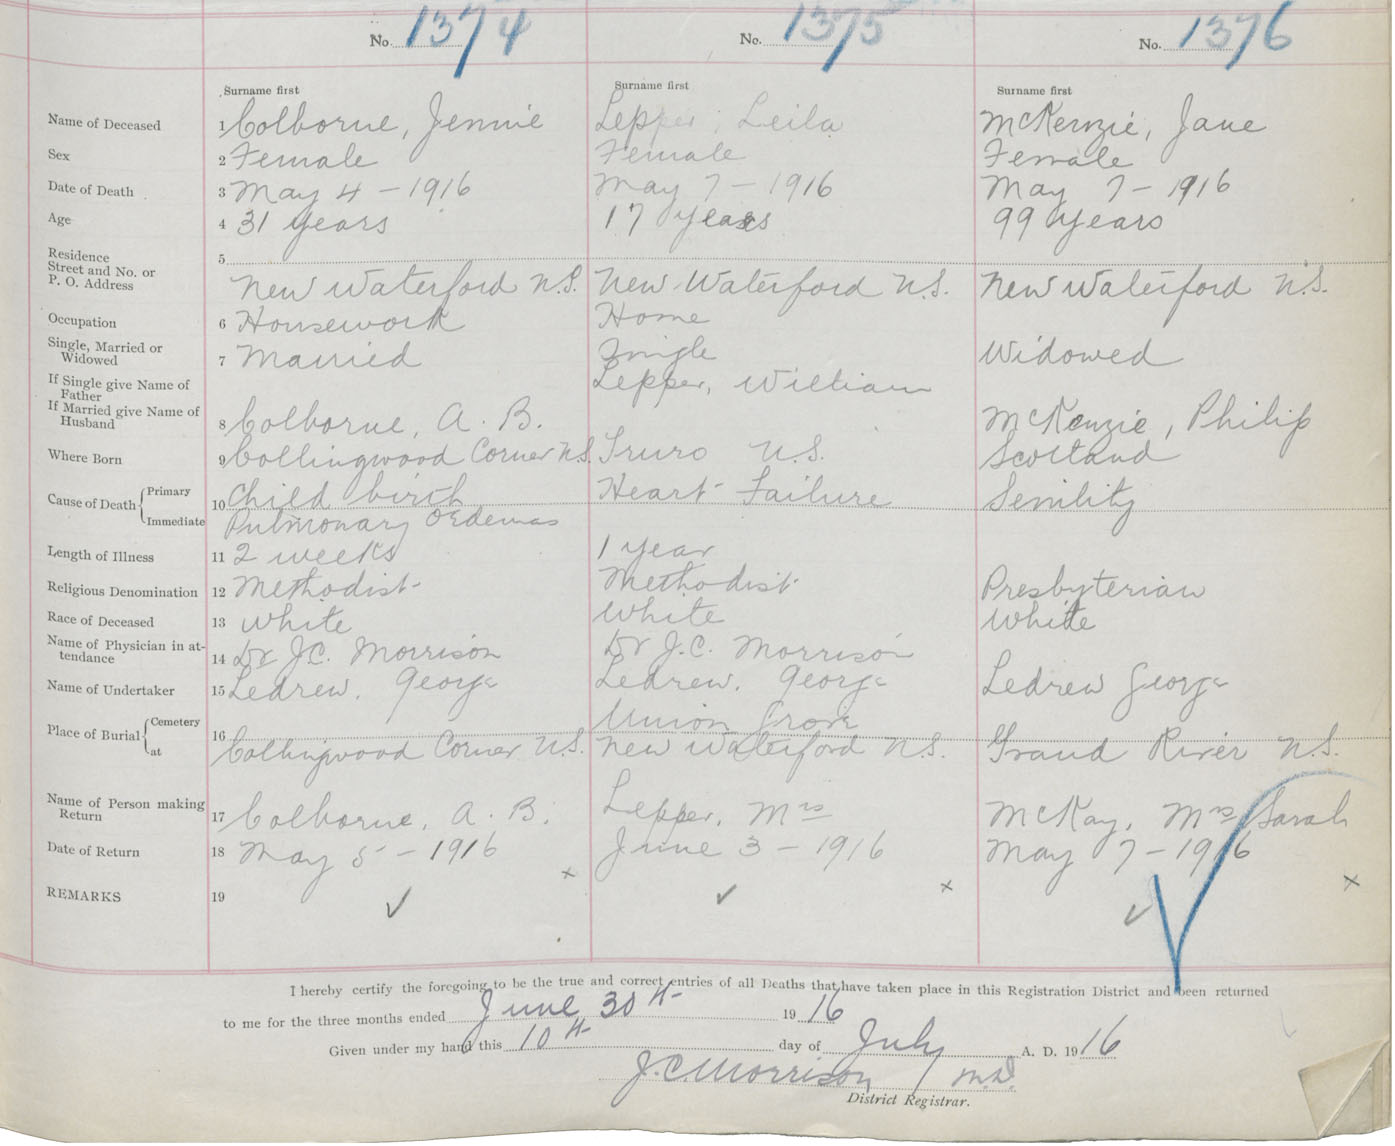 No. 1374 No. 1375 No. 1376
Surname first Surname first Surname first
Name of Deceased 1 Colborne, Jennie Lepper, Leila McKenzie, Jane
Sex 2 Female Female Female
Date of Death 3 May 4 - 1916 May 7 - 1916 May 7 - 1916
Age 4 31 years 17 years 99 years
Residence 5
Street and No. or
P. O. Address New Waterford N.S. New Waterford N.S. New Waterford N.S.
Occupation 6 Housework Home
Single, Married or
Widowed 7 Married Single Widowed
If Single give Name of
Father Lepper, William
If Married give Name of
Husband 8 Colborne, A. B. McKenzie, Philip
Where Born 9 Collingwood Corner N.S. Truro N.S. Scotland
Cause of Death Primary 10 Child birth Heart Failure Senility
Immediate Pulmonary Oedemas
Length of Illness 11 2 weeks 1 year
Religious Denomination 12 Methodist Methodist Presbyterian
Race of Deceased 13 White White White
Name of Physician in at-
tendance 14 Dr J.C. Morrison Dr J.C. Morrison
Name of Undertaker 15 Ledrew, George Ledrew, George Ledrew George
Place of Burial Cemetery 16 Union Grove
at Collingwood Corner N.S. New Waterford N.S. Grand River N.S.
Name of Person making
Return 17 Colborne, A. B. Lepper, Mrs McKay, Mrs Sarah
Date of Return 18 May 5 - 1916 June 3 - 1916 May 7 - 1916
REMARKS 19
I hereby certify the foregoing to be the true and correct entries of all Deaths that have taken place in this Registration District and been returned
to me for the three months ended June 30th 1916
Given under my hand this 10th day of July A. D. 1916
J.C. Morrison M.D.
District Registrar.